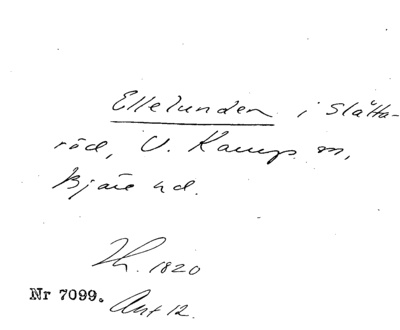 Ellelunden i Slätta-
röd, V. Karups sn,
Bjäre hd.
Th. 1820
Nr 7099. Ant 12.